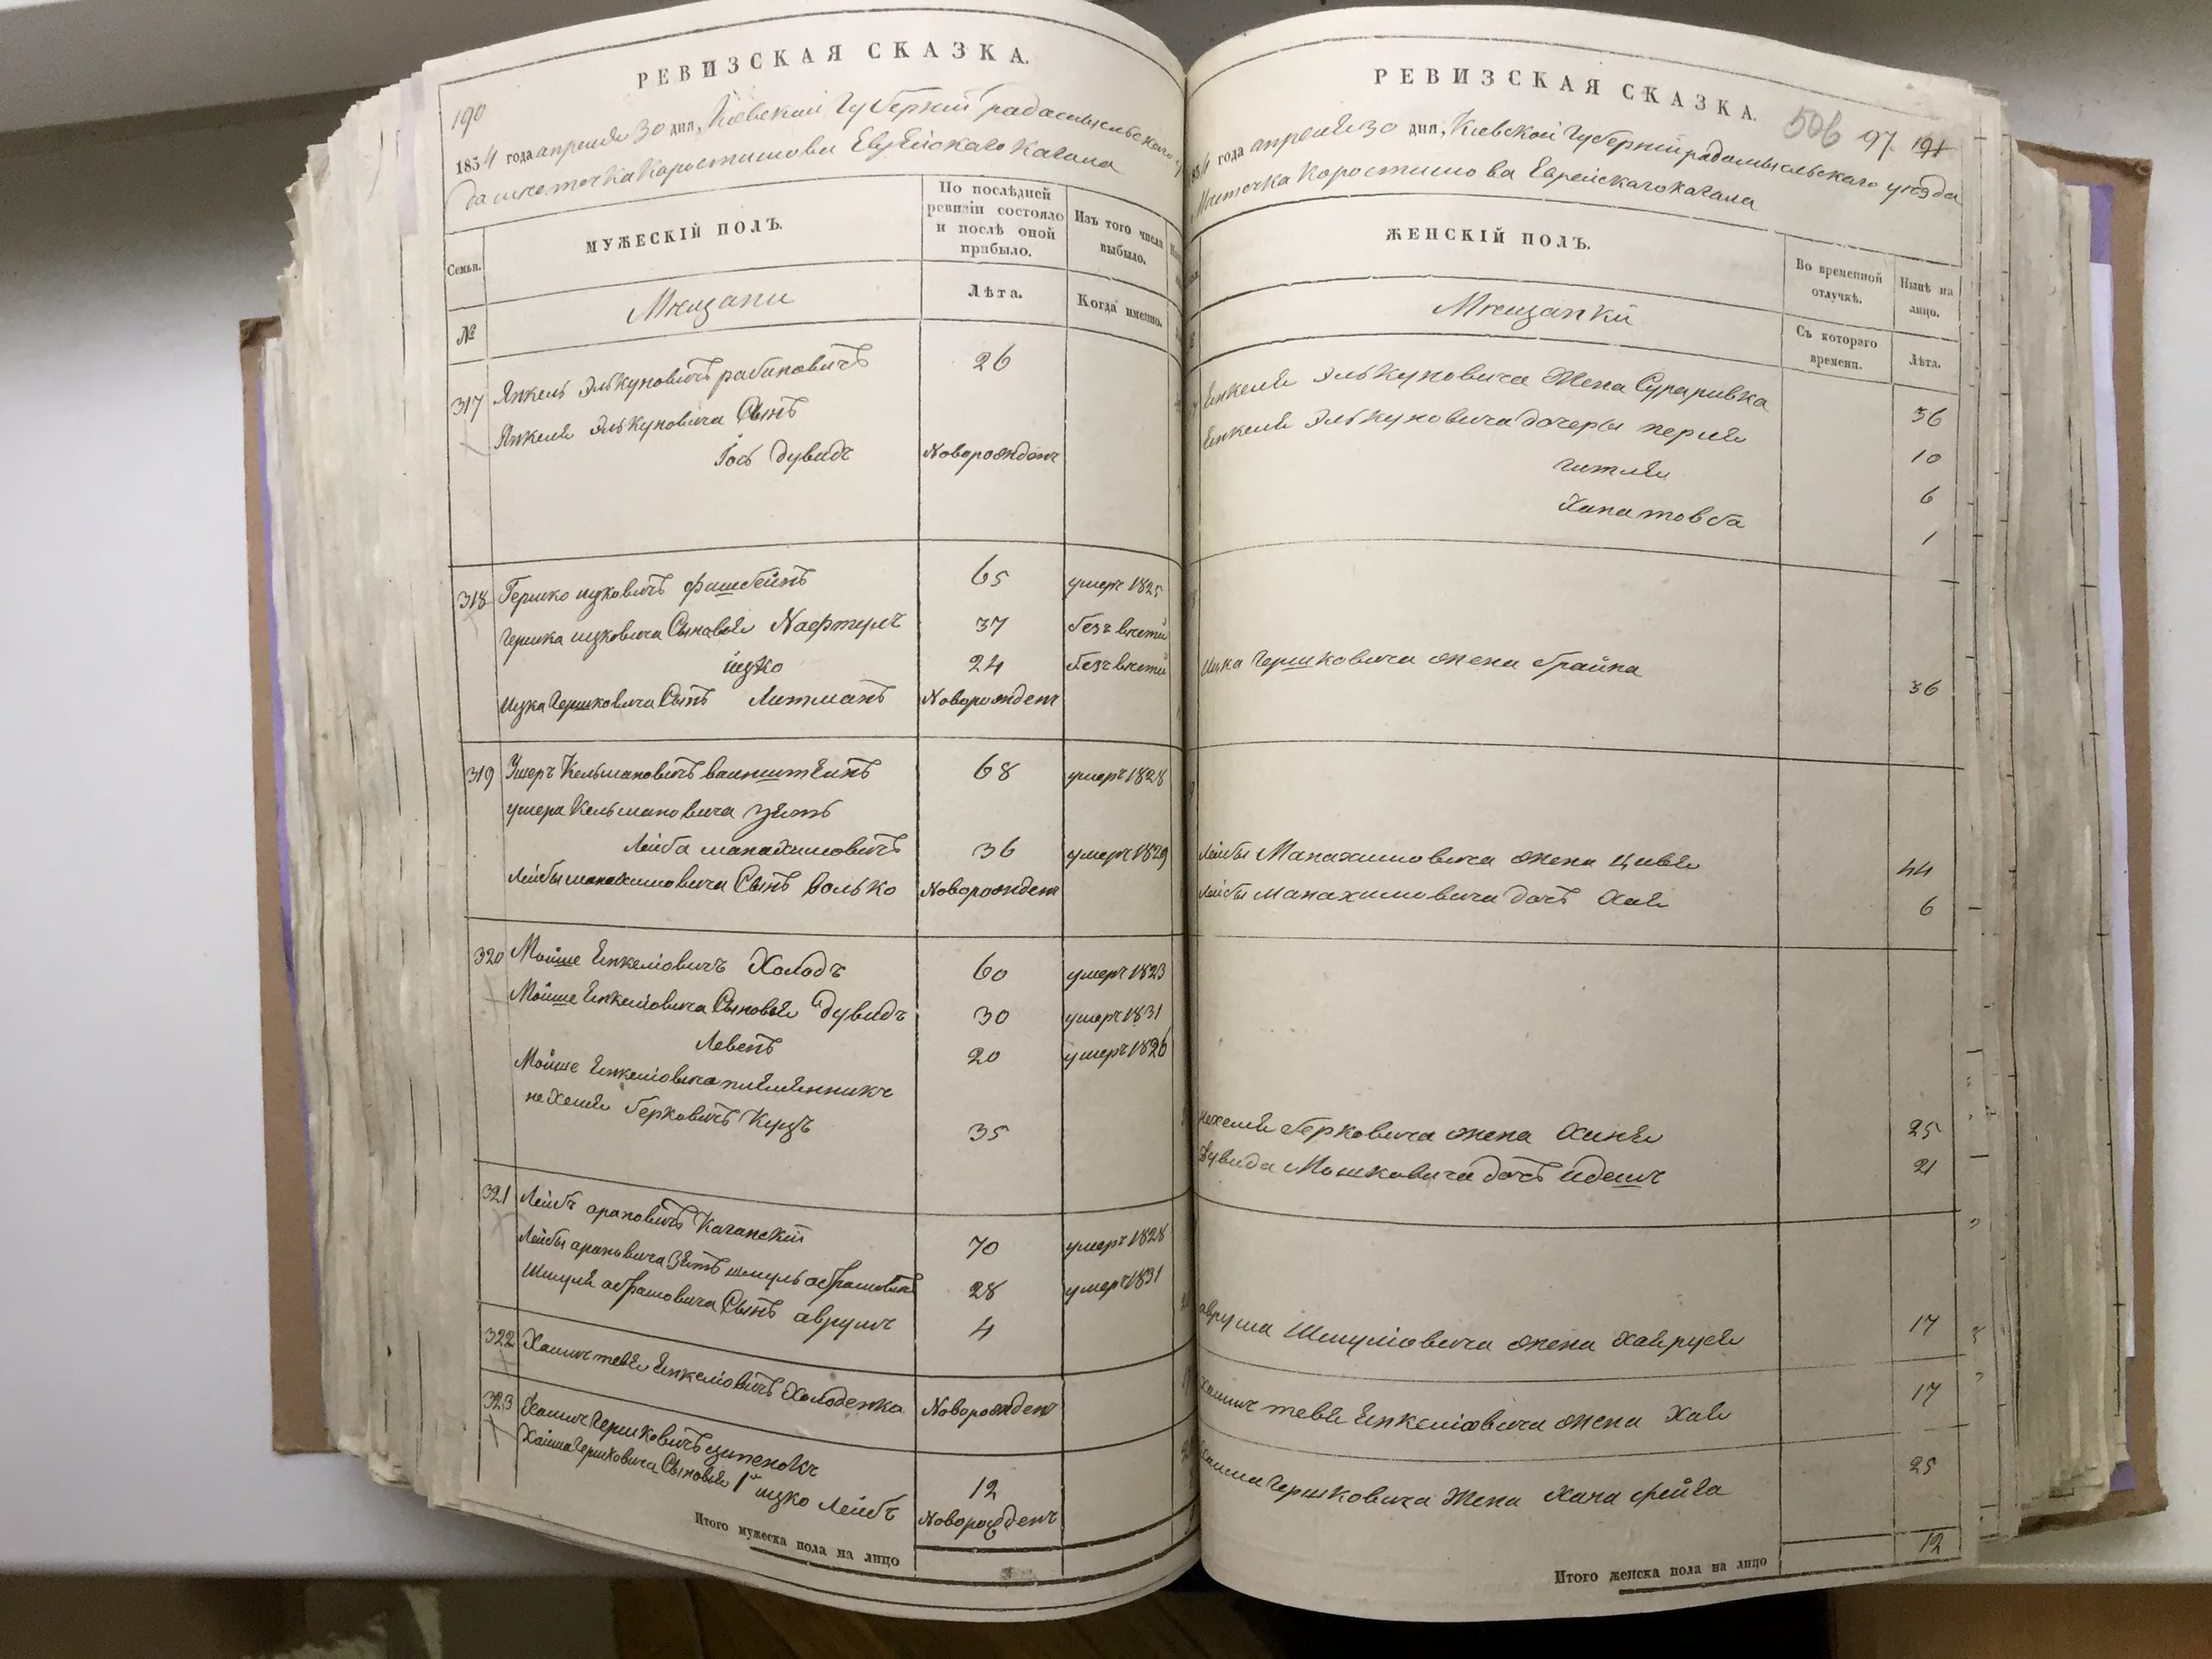 РЕВИЗСКАЯ СКАЗКА.
190
1834 года апреля 30 дня, Киевской Губернии радомысльского
местечка Коростишова Еврейскаго Кагала
Семьи.
МУЖЕСКІЙ ПОЛЪ.
По послѣдней ревизіи состояло и послѣ оной прибыло.
Изъ того числа выбыло.
№
Мещани
Лѣта.
Когда именно.
317 Янкель Элькуновичъ рабиновичъ 26
Янкеля Элькуновича Сынъ
Іось Дувидъ Новорожденъ
318 Гершко ицковичъ фишбейнъ 65 умеръ 1825
Гершка ицковича Сыновья Нафтулъ 37 безъ вести
ицко 24 безъ вести
ицка Гершковича Сынъ Литманъ Новорожденъ
319 Ушеръ Кельмановичъ ваинштеинъ 68 умеръ 1828
ушера Кельмановича зять
Лейба манахимовичъ 36 умеръ 1829
Лейбы манахимовича Сынъ волько Новорожденъ
320 Мойше Енкеліовичъ Холодъ 60 умеръ 1823
Мойше Енкеліовича Сыновья Дувидъ 30 умеръ 1831
Левенъ 20 умеръ 1826
Мойше Енкеліовича племенникъ
нехемя берковичъ Куцъ 35
321 Лейбъ ароновичъ Каганскій 70 умеръ 1828
Лейбы ароновича Зять шмуль абрамовичъ 28 умеръ 1831
Шмуля абрамовича Сынъ аврумъ 4
322 Хаимъ тевя Енкеліовичъ Холоденка Новорожденъ
323 Хаимъ Гершковичъ 12
Хаима Гершковича Сыновья 1й ицко Лейбъ Новорожденъ
Итого мужеска пола на лицо
РЕВИЗСКАЯ СКАЗКА.
506 97 191
года апреля 30 дня, Киевской Губернии радомысльскаго уезда
Местечка Коростишова Еврейскаго кагала
ЖЕНСКІЙ ПОЛЪ.
Во временной отлучкѣ.
Нынѣ на лицо.
Мещанки
Съ котораго времени.
Лѣта.
Енкеля Элькуновича Жена Сураривка 36
Енкеля Элькуновича дочеры перля 10
гитля 6
Ханатовба 1
ицка Гершковича жена брайна 36
Лейбы Манахимовича жена Цивя 44
Лейбы Манахимовича дочь Хая 6
нехемя берковича жена Хиня 25
Дувида Мошковича дочь идешъ 21
аврума Шмуліовича жена Хаяруся 17
Хаимъ тевя Енкеліовича жена Хая 17
Хаима Гершковича Жена Хана фейга 25
12
Итого женска пола на лицо